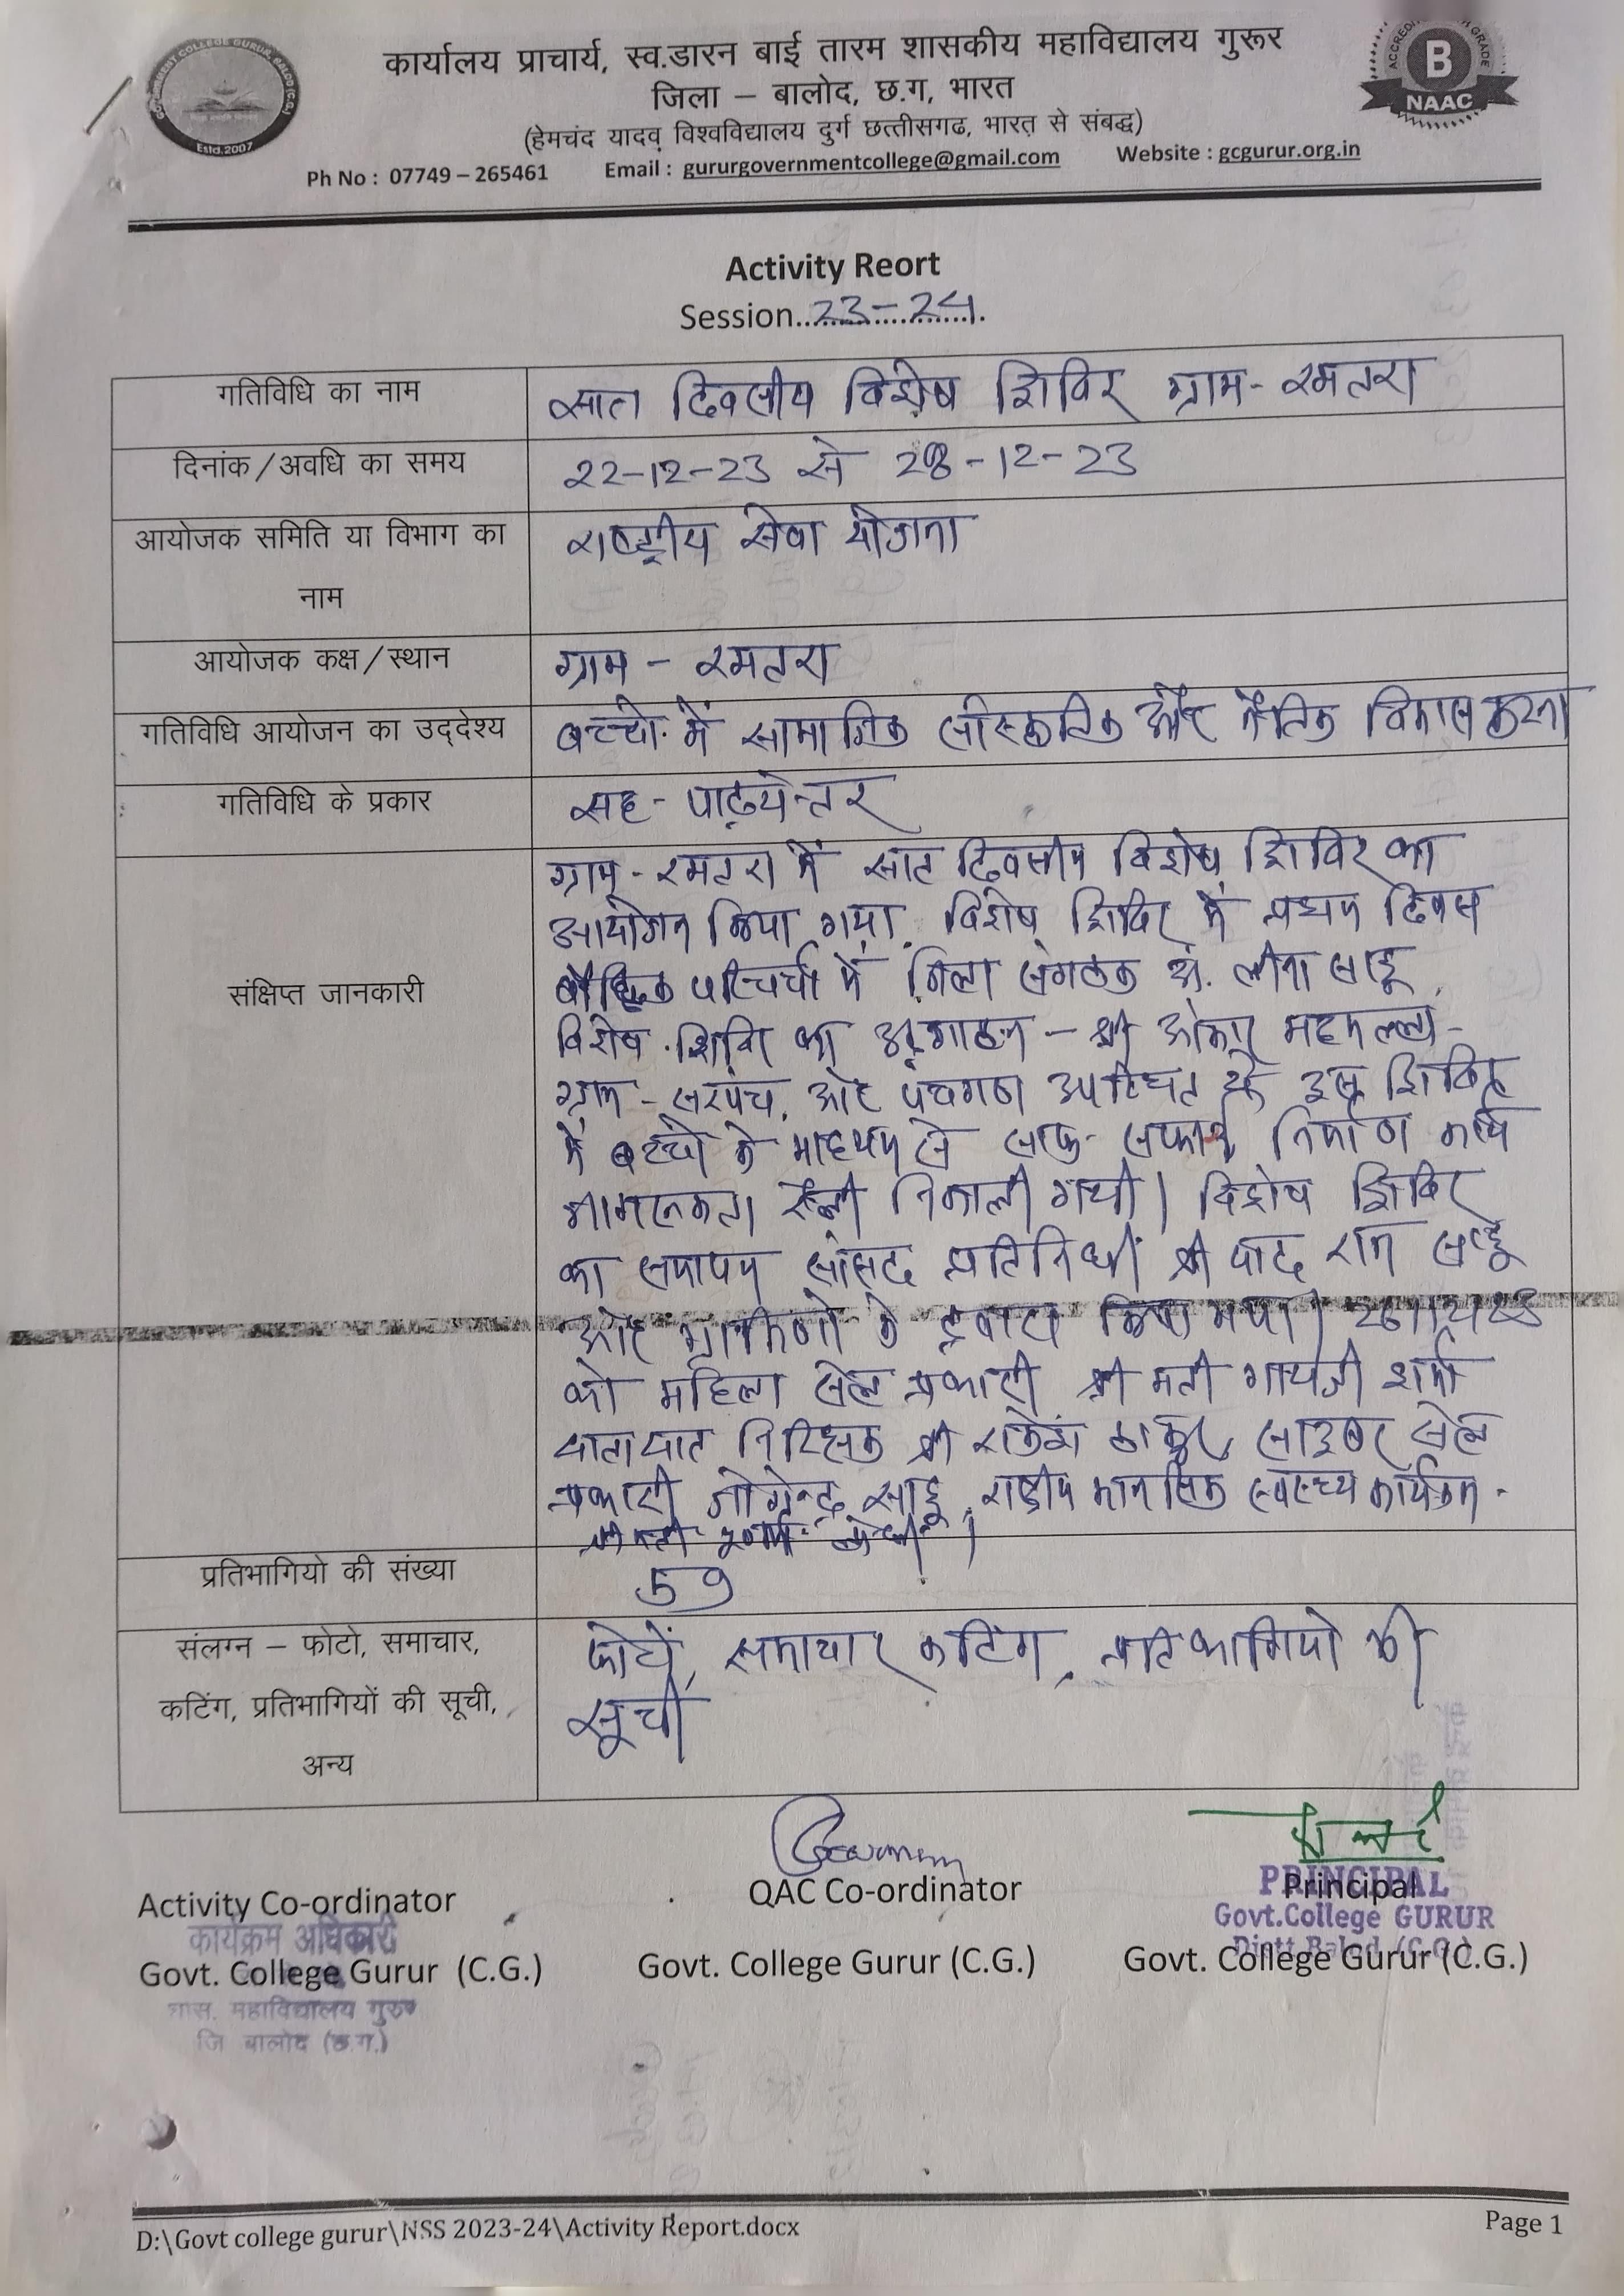 GOVERNMENT COLLEGE GURUR, BALOD (C.G.)
Estd.2007
कार्यालय प्राचार्य, स्व.डारन बाई तारम शासकीय महाविद्यालय गुरूर
जिला – बालोद, छ.ग, भारत
(हेमचंद यादव विश्वविद्यालय दुर्ग छत्तीसगढ, भारत से संबद्ध)
Ph No : 07749 – 265461 Email : gururgovernmentcollege@gmail.com Website : gcgurur.org.in
GRADE
B
NAAC
Activity Reort
Session..23-24.
गतिविधि का नाम
सात दिवसीय विशेष शिविर ग्राम - रमतरा
दिनांक/अवधि का समय
22-12-23 से 28-12-23
आयोजक समिति या विभाग का
नाम
राष्ट्रीय सेवा योजना
आयोजक कक्ष/स्थान
ग्राम - रमतरा
गतिविधि आयोजन का उद्देश्य
बच्चो में सामाजिक सांस्कृतिक और नैतिक विकास करना
गतिविधि के प्रकार
सह - पाठ्येन्तर
संक्षिप्त जानकारी
ग्राम - रमतरा में सात दिवसीय विशेष शिविर का
आयोजन किया गया. विशेष शिविर में प्रथम दिवस
बौद्धिक परिचर्चा में जिला संगठक लीना साहू,
विशेष शिविर का श्री ओंकार महमल्ला -
ग्राम - सरपंच, और पंचगण उपस्थित थे इस शिविर
में बच्चो के माध्यम से साफ - सफाई निर्माण कार्य
जागरूकता रैली निकाली गयी। विशेष शिविर
का समापन सांसद प्रतिनिधी श्री राम साहू
और ग्रामिणो के द्वारा किया गया।
को महिला सेल प्रभारी श्री मती गायत्री शर्मा
यातायात निरिक्षक श्री राकेश ठाकुर, साइबर सेल
प्रभारी जोगेन्द्र साहू, राष्ट्रीय मानसिक स्वास्थ्य कार्यक्रम -
प्रतिभागियो की संख्या
59
संलग्न – फोटो, समाचार,
कटिंग, प्रतिभागियों की सूची,
अन्य
फोटो, समाचार कटिंग, प्रतिभागियो की
सूची
Activity Co-ordinator
QAC Co-ordinator
Principal
PRINCIPAL
Govt.College GURUR
Distt.Balod (C.G.)
कार्यक्रम अधिकारी
Govt. College Gurur (C.G.)
Govt. College Gurur (C.G.)
Govt. College Gurur (C.G.)
शास. महाविद्यालय गुरुर
जि बालोद (छ.ग.)
D:\Govt college gurur\NSS 2023-24\Activity Report.docx
Page 1